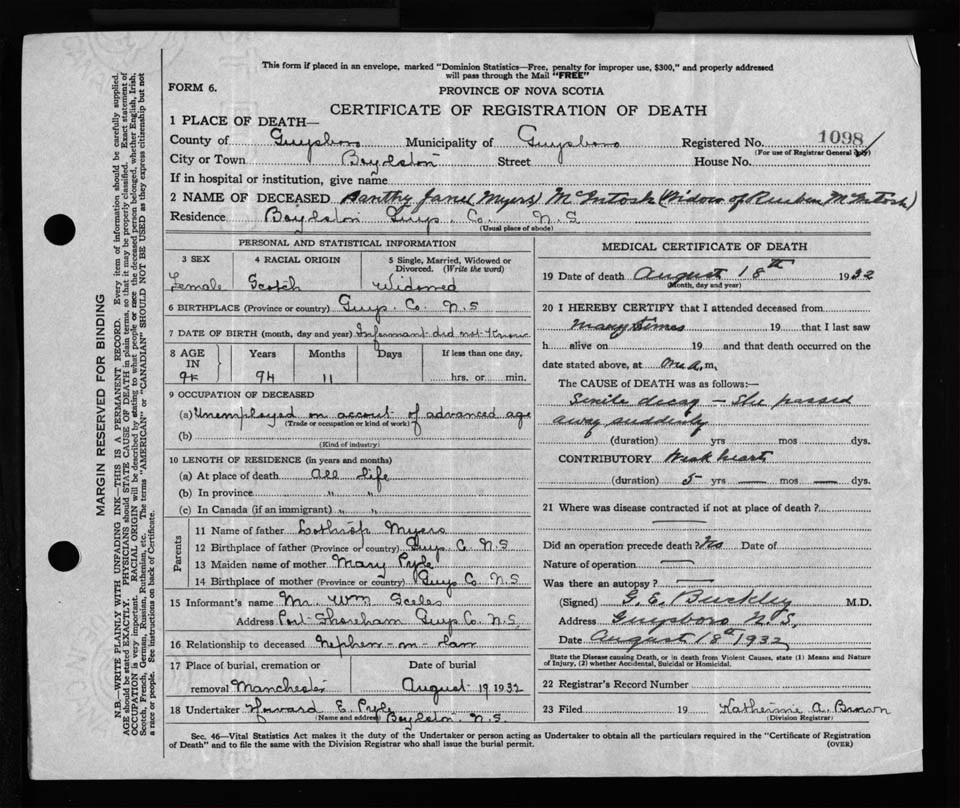 This form if placed in an envelope, marked "Dominion Statistics—Free, penalty for improper use, $300," and properly addressed
will pass through the Mail "FREE"
FORM 6.
PROVINCE OF NOVA SCOTIA
CERTIFICATE OF REGISTRATION OF DEATH
1 PLACE OF DEATH—
County of Guysboro Municipality of Guysboro Registered No. 1098
(For use of Registrar General only)
City or Town Boylston Street House No.
If in hospital or institution, give name
2 NAME OF DECEASED Xanthy Jane (Myers) McIntosh (Widow of Reuben McIntosh)
Residence Boylston Guys. Co. N.S
(Usual place of abode)
PERSONAL AND STATISTICAL INFORMATION
3 SEX 4 RACIAL ORIGIN 5 Single, Married, Widowed or Divorced. (Write the word)
Female Scotch Widowed
6 BIRTHPLACE (Province or country) Guys. Co. N.S
7 DATE OF BIRTH (month, day and year) Informant did not Know
8 AGE IN Years Months Days If less than one day,
94 11 hrs. or min.
9 OCCUPATION OF DECEASED
(a) Unemployed on account of advanced age
(Trade or occupation or kind of work)
(b)
(Kind of industry)
10 LENGTH OF RESIDENCE (in years and months)
(a) At place of death All life
(b) In province " "
(c) In Canada (if an immigrant) " "
Parents
11 Name of father Lothrop Myers
12 Birthplace of father (Province or country) Guys C. N.S
13 Maiden name of mother Mary Pyle
14 Birthplace of mother (Province or country) Guys Co. N.S
15 Informant's name Mr. Wm
Address Port Shoreham Guys. Co. N.S,
16 Relationship to deceased Nephew-in-law
17 Place of burial, cremation or Date of burial
removal Manchester August 19 1932
18 Undertaker Howard E. Pyle
(Name and address) Boylston N.S.
MEDICAL CERTIFICATE OF DEATH
19 Date of death August 18th 1932
(Month, day and year)
20 I HEREBY CERTIFY that I attended deceased from
Many times 19 that I last saw
h alive on 19 and that death occurred on the
date stated above, at m.
The CAUSE of DEATH was as follows:—
Senile decay — She passed
away suddenly
(duration) yrs mos dys.
CONTRIBUTORY Weak heart
(duration) 5 yrs — mos — dys.
21 Where was disease contracted if not at place of death?
—
Did an operation precede death? No Date of
Nature of operation —
Was there an autopsy? —
(Signed) G. E. Buckley M.D.
Address Guysboro N.S.
Date August 18th 1932
State the Disease causing Death, or in death from Violent Causes, state (1) Means and Nature
of Injury, (2) whether Accidental, Suicidal or Homicidal.
22 Registrar's Record Number
23 Filed 19 Katherine A. Brown
(Division Registrar)
Sec. 46—Vital Statistics Act makes it the duty of the Undertaker or person acting as Undertaker to obtain all the particulars required in the "Certificate of Registration
of Death" and to file the same with the Division Registrar who shall issue the burial permit.
(OVER)
MARGIN RESERVED FOR BINDING
N.B.—WRITE PLAINLY WITH UNFADING INK—THIS IS A PERMANENT RECORD. Every item of information should be carefully supplied.
AGE should be stated EXACTLY. PHYSICIANS should STATE CAUSE OF DEATH in plain terms, so that it may be properly classified. Exact statement of
OCCUPATION is very important. RACIAL ORIGIN will be described by stating to what people or race the deceased person belonged, whether English, Irish,
Scotch, French, German, Russian, Ruthenian, etc. The terms "AMERICAN" or "CANADIAN" SHOULD NOT BE USED as they express citizenship but not
a race or people. See instructions on back of Certificate.